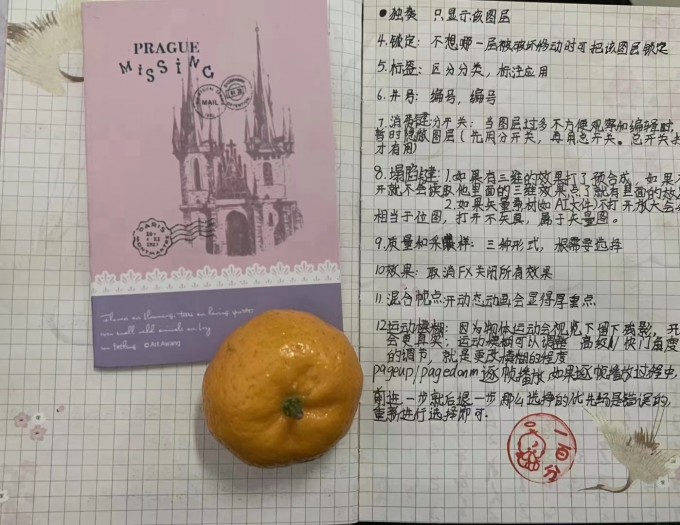 PRAGUE
MISSING
MAIL
PARIS
MONTMARTRE
© Art Awang
独奏：只显示该图层
4.锁定：不想哪一层被破坏移动时可把该图层锁定
5.标签：区分分类，标注应用
6.井号：编号，编号
7.消隐键分开关：当图层过多不方便观察和编辑时，
暂时隐藏图层（先用分开关，再用总开关。总开关
才有用）
8.塌陷键：1.如果有三维的效果打了预合成，如果不
开就不会读取他里面的三维效果点了就有里面的效果
2.如果矢量素材(如AI文件)不打开放大会
相当于位图，打开不失真，属于矢量图。
9.质量和采样：三种形式，根需要选择
10效果：取消FX关闭所有效果
11混合帧点开动态动画会显得厚重点
12运动模糊：因为物体运动会视觉下留下残影，开
会更真实，运动模糊可以调整 高级//快门角度
的调节，就是更改模糊的程度
pageup/pagedonm逐帧播放，如果逐帧播放过程中，
前进一步就后退一步那么选择的优先级是错误的，
重新进行选择即可.
一百分